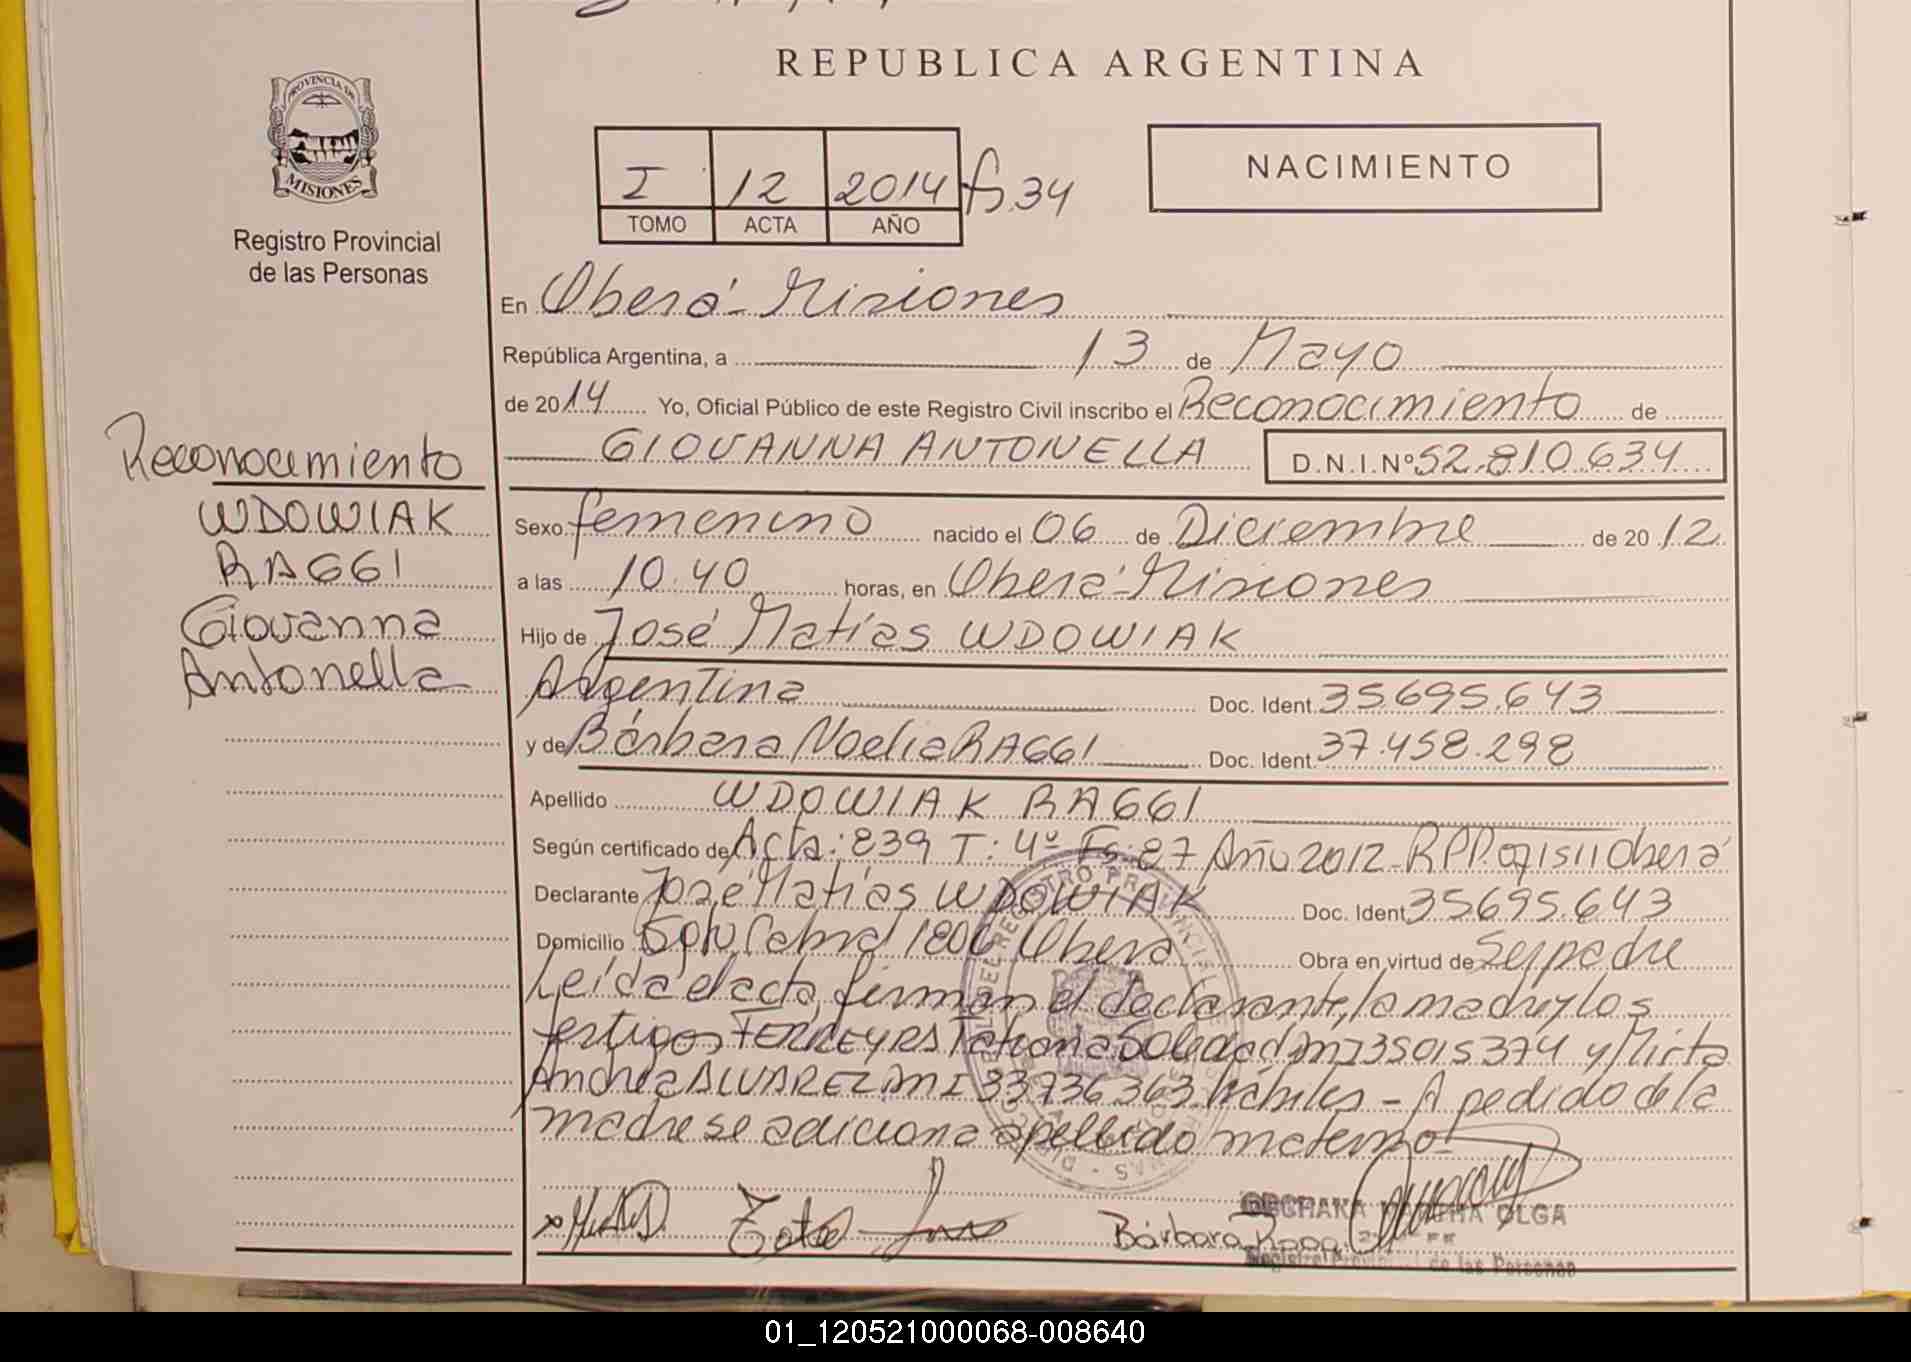 REPUBLICA ARGENTINA
PROVINCIA DE
MISIONES
Registro Provincial
de las Personas
I 12 2014 fs.34
TOMO ACTA AÑO
NACIMIENTO
En Oberá-Misiones
República Argentina, a 13 de Mayo
de 2014 Yo, Oficial Público de este Registro Civil inscribo el Reconocimiento de
GIOVANNA ANTONELLA D.N.I.Nº 52.810.634
Reconocimiento
WDOWIAK
RAGGI
Giovanna
Antonella
Sexo femenino nacido el 06 de Diciembre de 2012
a las 10.40 horas, en Oberá-Misiones
Hijo de José Matías WDOWIAK
Argentina Doc. Ident. 35695.643
y de Bárbara Noelia RAGGI Doc. Ident. 37.458.298
Apellido WDOWIAK RAGGI
Según certificado de Acta: 839 T: 4º Fs: 87 Año 2012- RPP. Oberá
Declarante José Matías WDOWIAK Doc. Ident. 35695.643
Domicilio Cabral Oberá Obra en virtud de Ser padre
Leída el acta, firman el declarante, la madre y los
testigos FERREYRA Tatiana Soledad DNI 35015374 y Mirta
Andrea ALVAREZ DNI 33736363 hábiles - A pedido de la
madre se adiciona apellido materno-
Bárbara
OLGA
Registro Provincial de las Personas
01_120521000068-008640